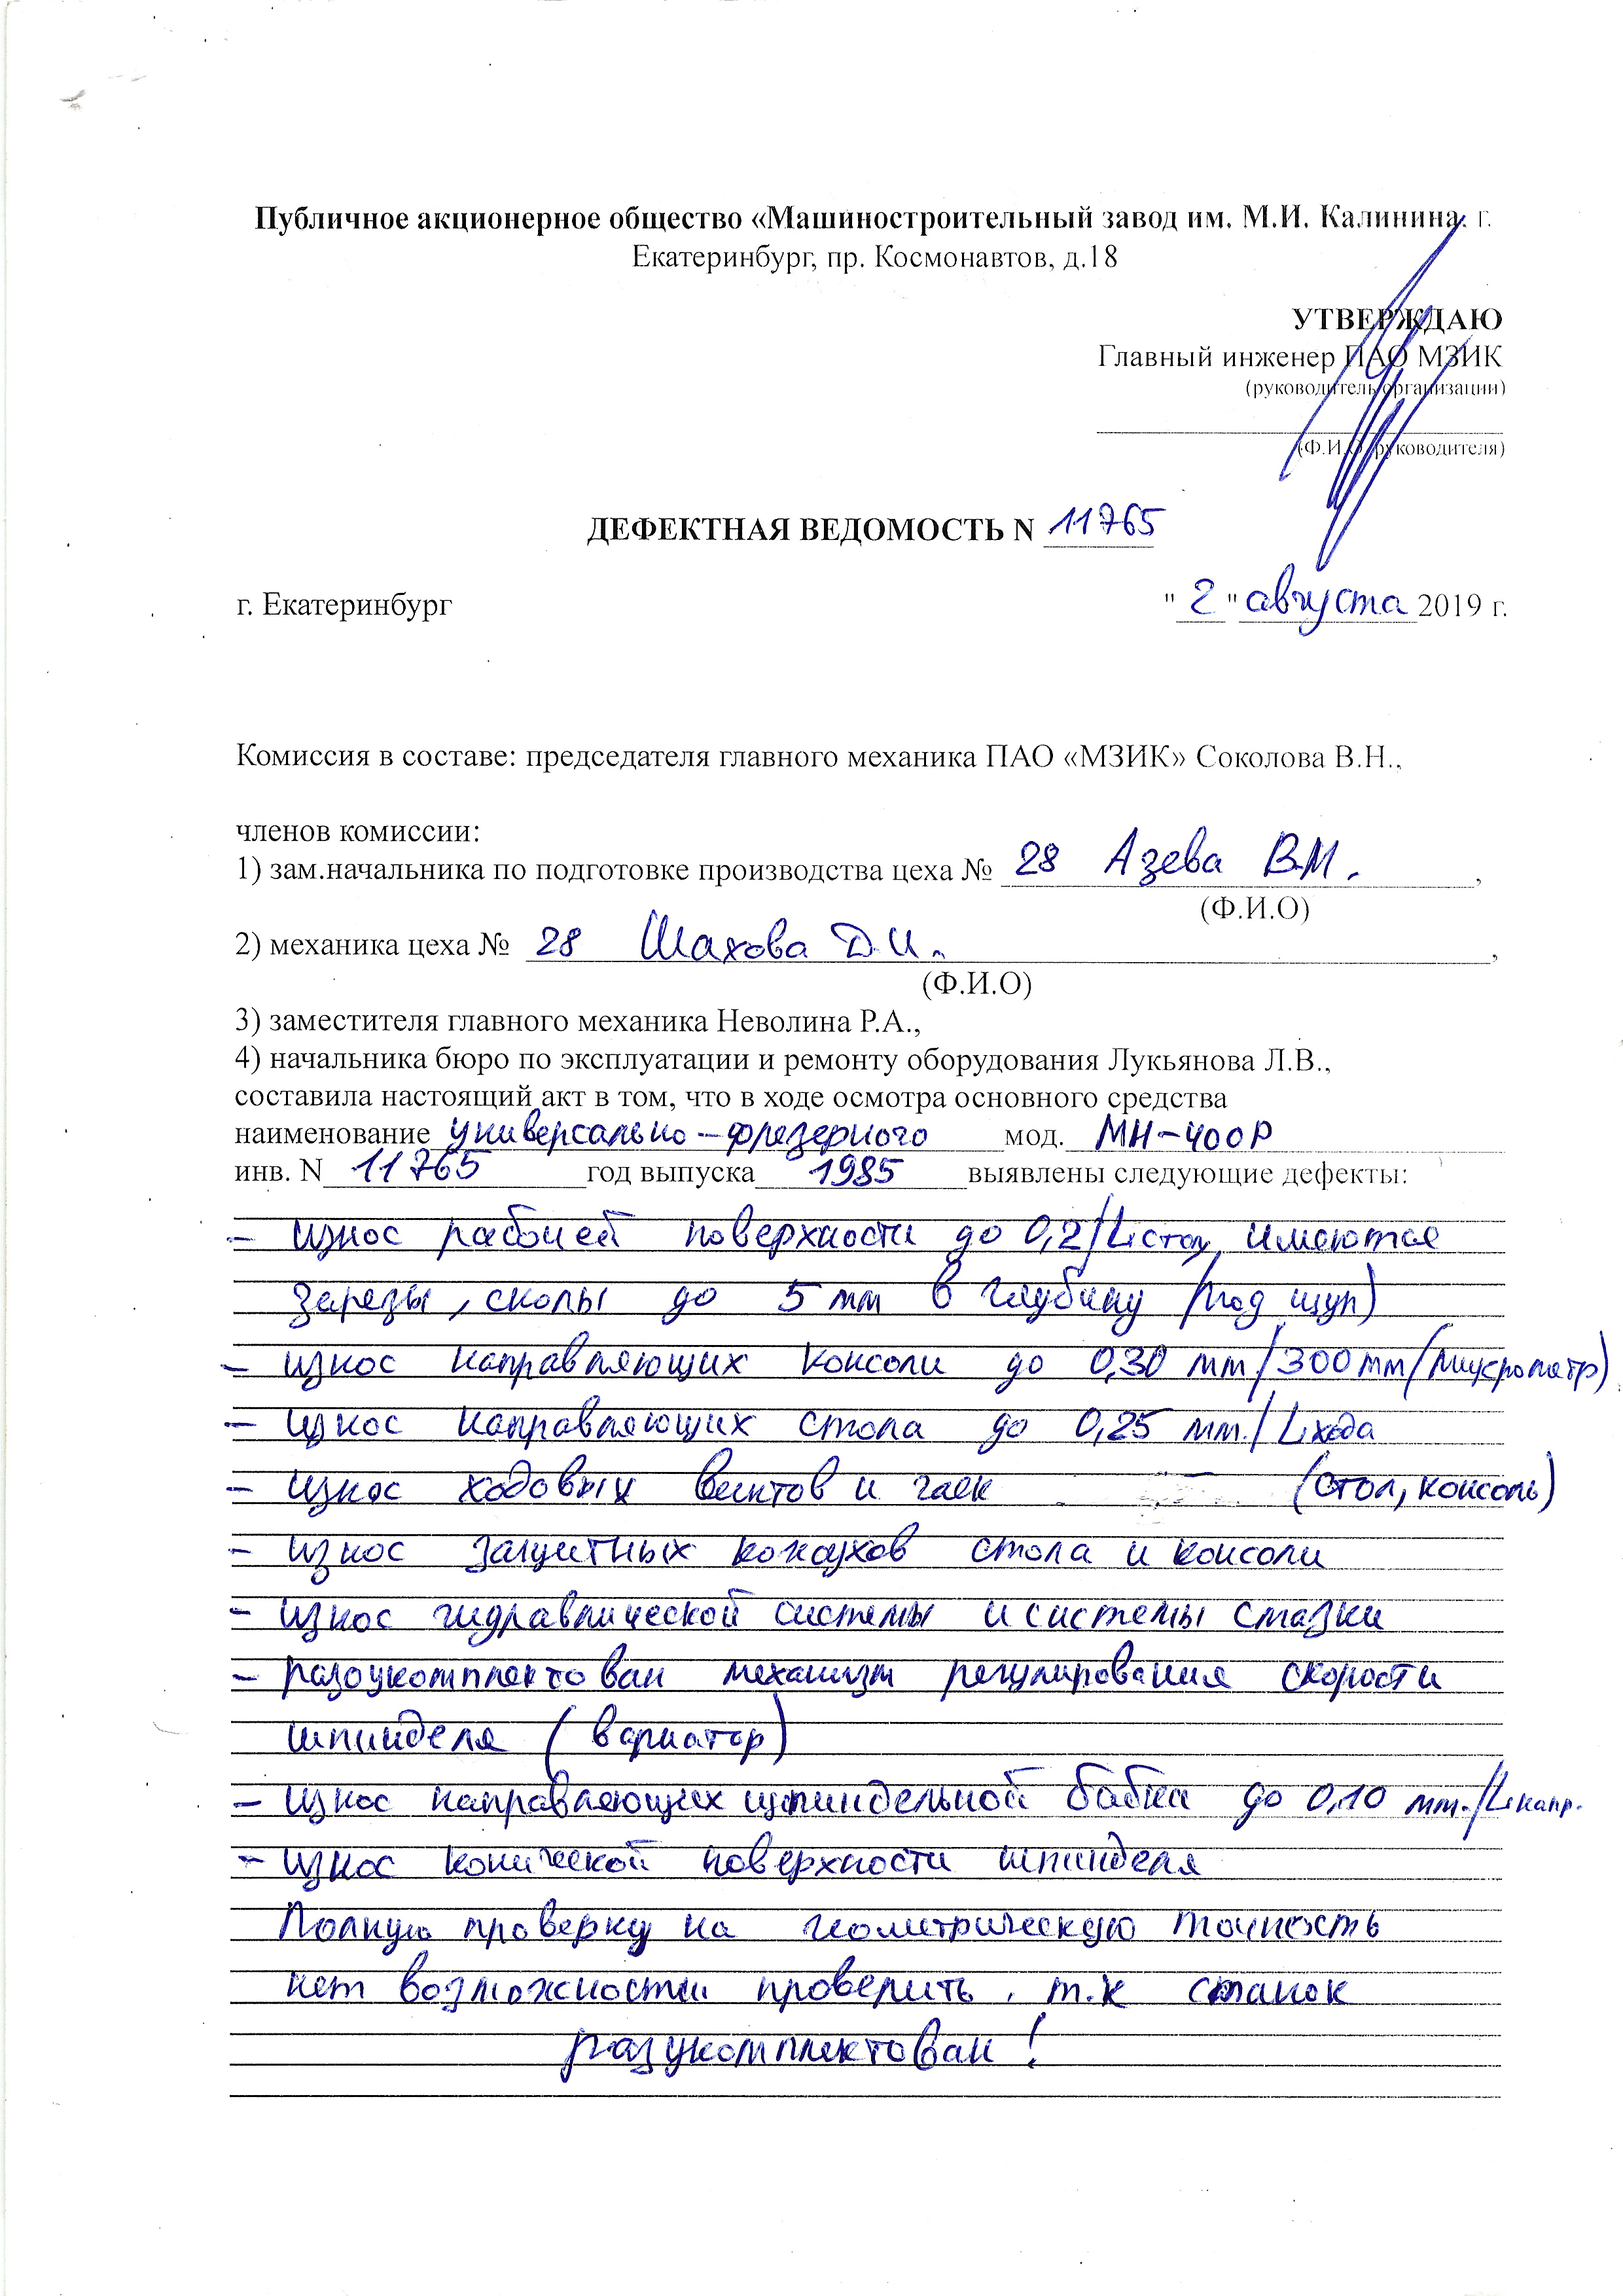 Публичное акционерное общество «Машиностроительный завод им. М.И. Калинина. г.
Екатеринбург, пр. Космонавтов, д.18
УТВЕРЖДАЮ
Главный инженер ПАО МЗИК
(руководитель организации)
(Ф.И.О. руководителя)
ДЕФЕКТНАЯ ВЕДОМОСТЬ N 11765
г. Екатеринбург " 2 " августа 2019 г.
Комиссия в составе: председателя главного механика ПАО «МЗИК» Соколова В.Н.,
членов комиссии:
1) зам.начальника по подготовке производства цеха № 28 Азева В.М.,
(Ф.И.О)
2) механика цеха № 28 Шахова Д.И.,
(Ф.И.О)
3) заместителя главного механика Неволина Р.А.,
4) начальника бюро по эксплуатации и ремонту оборудования Лукьянова Л.В.,
составила настоящий акт в том, что в ходе осмотра основного средства
наименование универсально-фрезерного мод. МН-400Р
инв. N 11765 год выпуска 1985 выявлены следующие дефекты:
- износ рабочей поверхности до 0,2/L стол, имеются
зарезы, сколы до 5 мм в глубину (под щуп)
- износ направляющих консоли до 0,30 мм/300 мм (микрометр)
- износ направляющих стола до 0,25 мм./L хода
- износ ходовых винтов и гаек (стол, консоль)
- износ защитных кожухов стола и консоли
- износ гидравлической системы и системы смазки
- разоукомплектован механизм регулирования скорости
шпинделя (вариатор)
- износ направляющих шпиндельной бабки до 0,10 мм./L напр.
- износ конической поверхности шпинделя
Полную проверку на геометрическую точность
нет возможности проверить, т.к станок
разукомплектован!